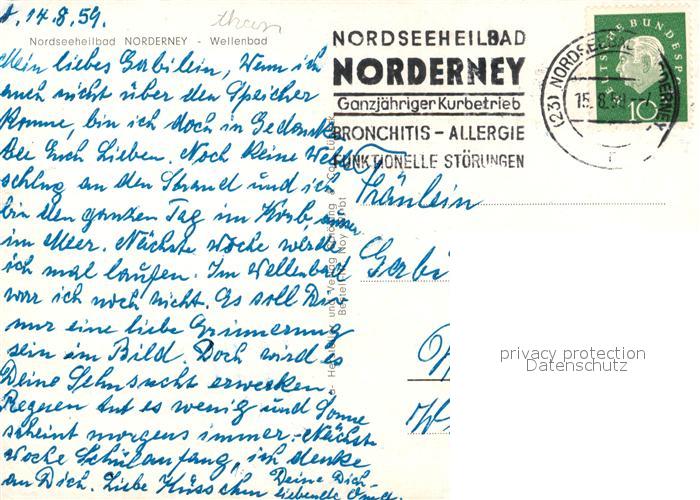 14.8.59.
Nordseeheilbad NORDERNEY - Wellenbad
Mein liebes Gabilein, Wenn ich
auch nicht über den Speicher
komme, bin ich doch in Gedanken
bei Euch Lieben. Noch keine Welle
schlug an den Strand und ich
bin den ganzen Tag im Korb, ausser
im Meer. Nächste Woche werde
ich mal laufen. Im Wellenbad
war ich noch nicht. Es soll Dir
nur eine liebe Erinnerung
sein im Bild. Doch wird es
Deine Sehnsucht erwecken.
Regnen tut es wenig und Sonne
scheint morgens immer. - Nächste
Woche Schulanfang, ich denke
an Dich. Liebe Küsschen Deine Dich
liebende Oma.
NORDSEEHEILBAD
NORDERNEY
Ganzjähriger Kurbetrieb
BRONCHITIS - ALLERGIE
FUNKTIONELLE STÖRUNGEN
(23) NORDSEEHEILBAD NORDERNEY
15.8.59
DEUTSCHE BUNDESPOST
10
Fräulein
Gabi
privacy protection
Datenschutz